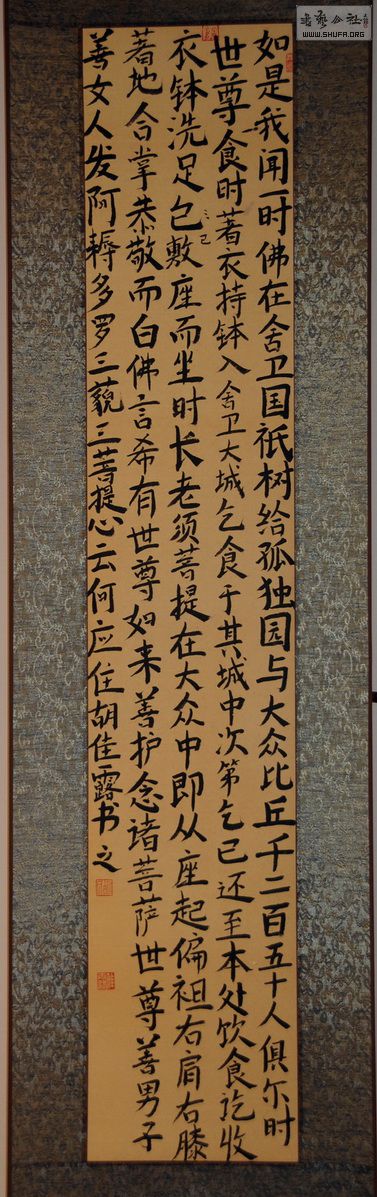 如是我闻一时佛在舍卫国祇树给孤独园与大众比丘千二百五十人俱尔时
世尊食时著衣持钵入舍卫大城乞食于其城中次第乞已还至本处饮食讫收
衣钵洗足包敷座而坐时长老须菩提在大众中即从座起偏袒右肩右膝
已
著地合掌恭敬而白佛言希有世尊如来善护念诸菩萨世尊善男子
善女人发阿耨多罗三藐三菩提心云何应住胡佳露书之
WWW.SHUFA.ORG